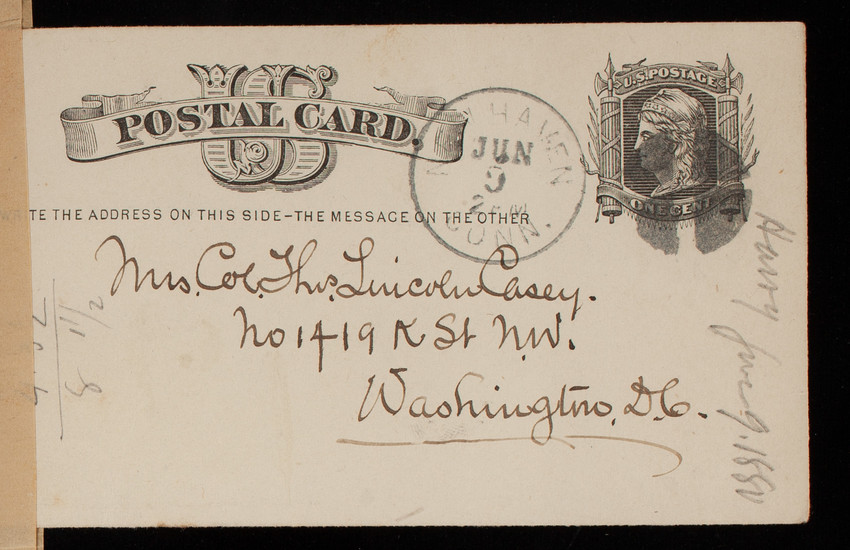 US
POSTAL CARD.
U.S. POSTAGE
ONE CENT
HAVEN
JUN
9
2 PM
CONN.
WRITE THE ADDRESS ON THIS SIDE–THE MESSAGE ON THE OTHER
Mrs. Col. Thos. Lincoln Casey.
No 1419 K St N.W.
Washington, D.C.
Harry June 9. 1880
8 11/2